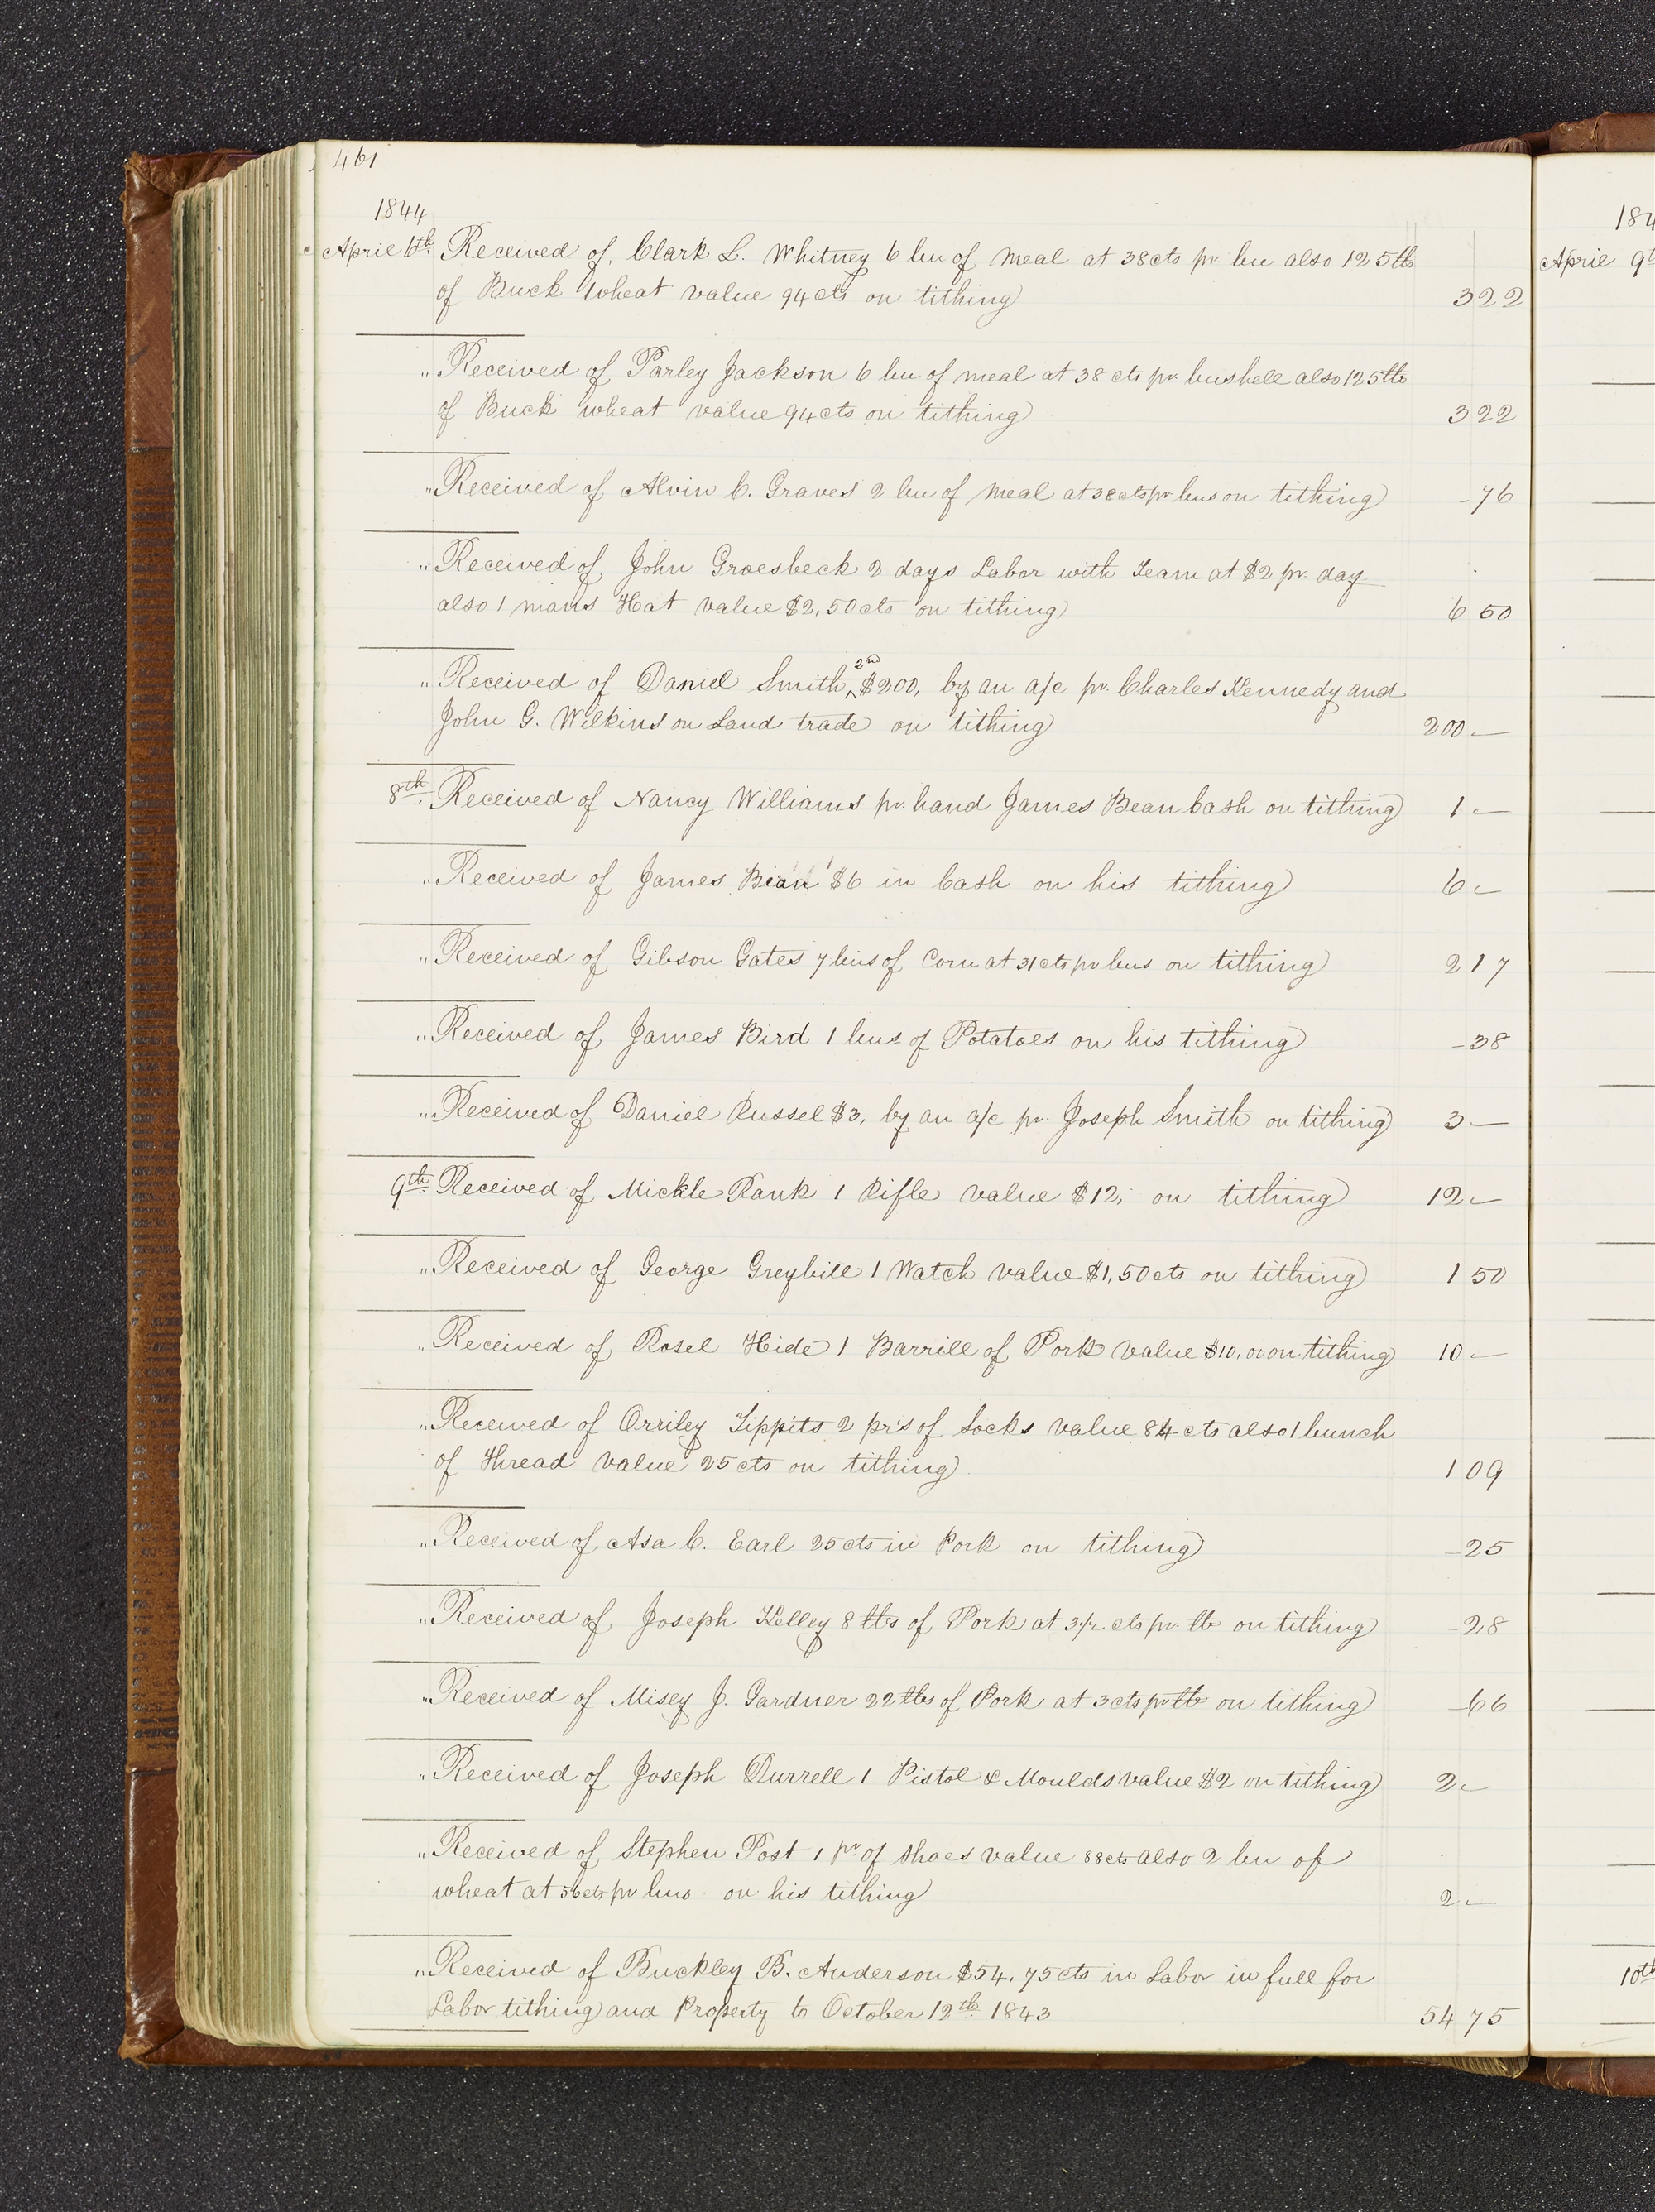 461
1844
April 6th Received of Clark L. Whitney 6 bu of meal at 38 cts pr. bu also 125 lbs
of Buck wheat value 94 cts on tithing 3 22
" Received of Parley Jackson 6 bu of meal at 38 cts pr bushell also 125 lbs
of Buck wheat value 94 cts on tithing 3 22
" Received of Alvin C. Graves 2 bu of meal at 38 cts pr bus on tithing - 76
" Received of John Groesbeck 2 days Labor with Team at $2 pr. day
also 1 mans Hat value $2,50 cts on tithing 6 50
" Received of Daniel Smith 2nd $200, by an a/c pr. Charles Kennedy and
John G. Wilkins on Land trade on tithing 200 —
8th " Received of Nancy Williams pr. hand James Bean Cash on tithing 1 —
" Received of James Bean $6 in Cash on his tithing 6 —
" Received of Gibson Gates 7 bus of Corn at 31 cts pr bus on tithing 2 17
" Received of James Bird 1 bus of Potatoes on his tithing - 38
" Received of Daniel Russel $3, by an a/c pr. Joseph Smith on tithing 3 —
9th Received of Mickle Rank 1 Rifle value $12, on tithing 12 —
" Received of George Greybill 1 Watch value $1,50 cts on tithing 1 50
" Received of Rosel Heide 1 Barrill of Pork value $10,00 on tithing 10 —
" Received of Orriley Tippits 2 pr's of Socks value 84 cts also 1 bunch
of Thread value 25 cts on tithing 1 09
" Received of Asa C. Earl 25 cts in Pork on tithing - 25
" Received of Joseph Kelley 8 lbs of Pork at 3 1/2 cts pr. lb on tithing - 28
" Received of Misey J. Gardner 22 lbs of Pork at 3 cts pr lb on tithing - 66
" Received of Joseph Durrell 1 Pistol & Moulds value $2 on tithing 2 —
" Received of Stephen Post 1 pr of shoes value 88 cts also 2 bu of
wheat at 56 cts pr bus on his tithing 2 —
" Received of Buckley B. Anderson $54,75 cts in Labor in full for
Labor tithing and Property to October 12th 1843 54 75
184
April 9t
10th